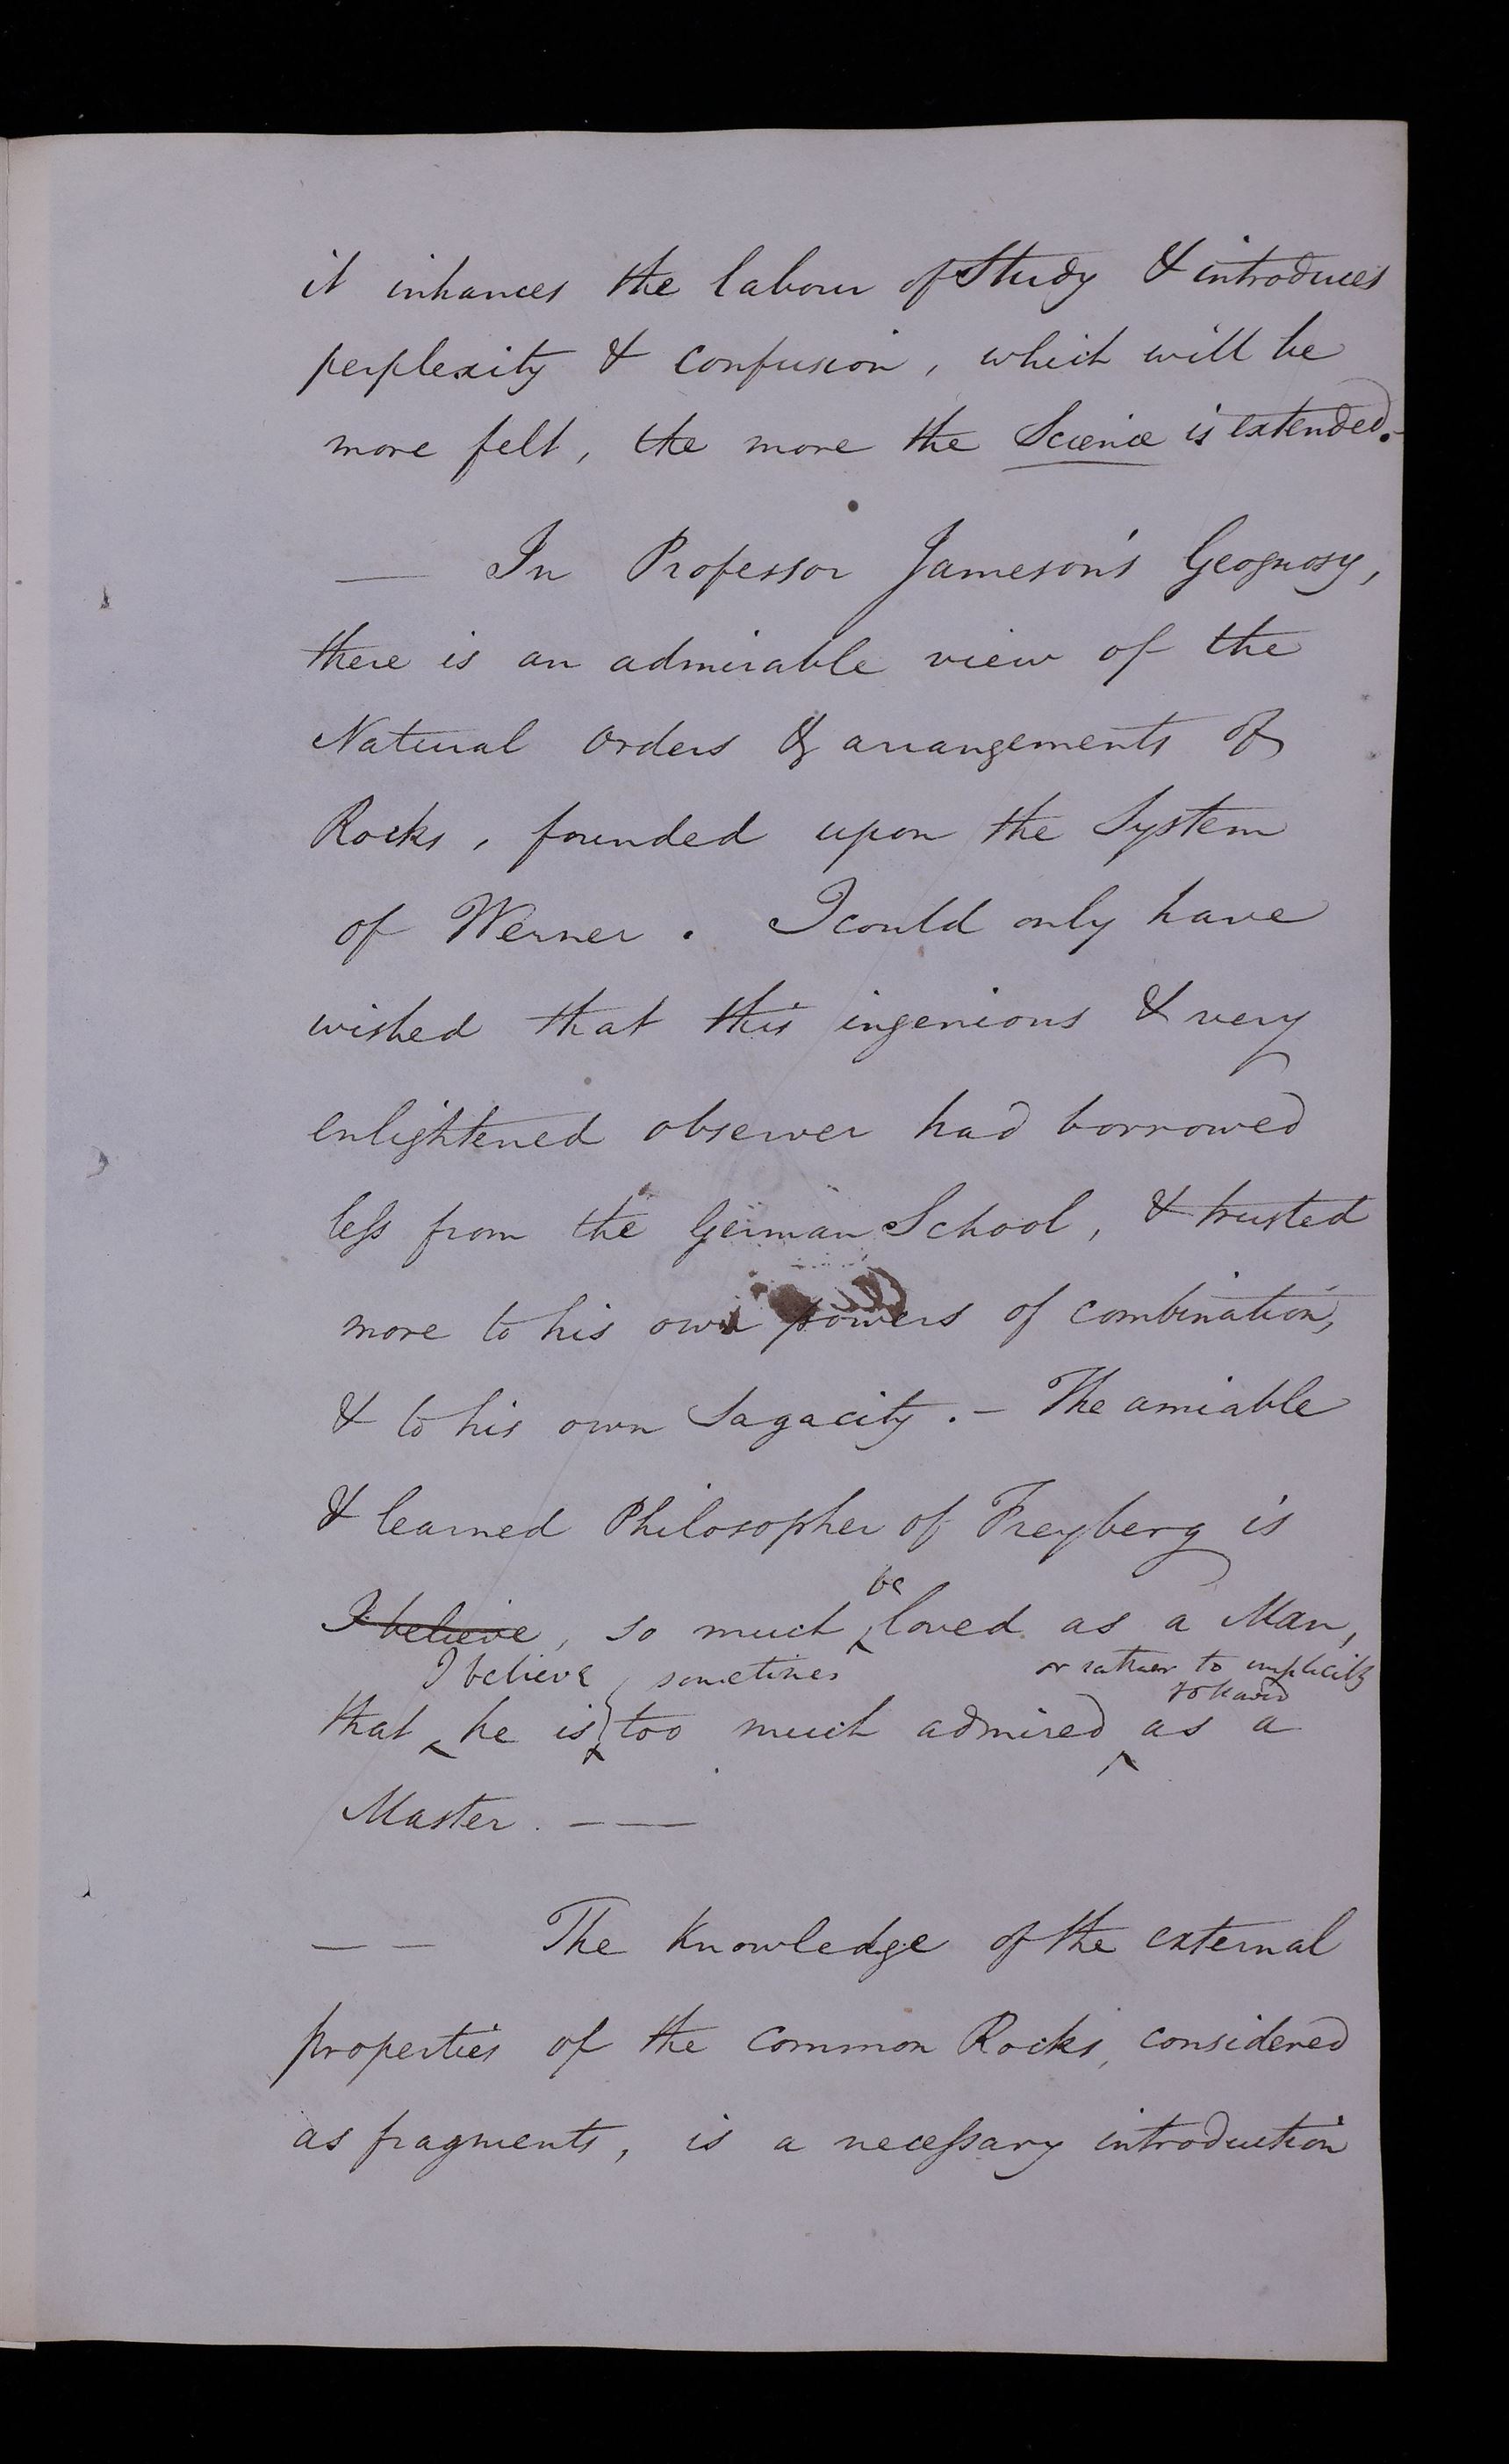 it inhances the labour of Study & introduces
perplexity & confusion, which will be
more felt, the more the Science is extended.-
— In Professor Jameson's Geognosy,
there is an admirable view of the
Natural orders & arrangements of
Rocks, founded upon the System
of Werner. I could only have
wished that this ingenious & very
enlightened observer had borrowed
less from the German School, & trusted
more to his own powers of combination,
& to his own Sagacity. - The amiable
& learned Philosopher of Freyberg is
be
I believe, so much loved as a Man,
I believe sometimes or rather to implicitly
followed
that he is too much admired as a
Master. — —
— — The Knowledge of the external
properties of the common Rocks, considered
as fragments, is a necessary introduction